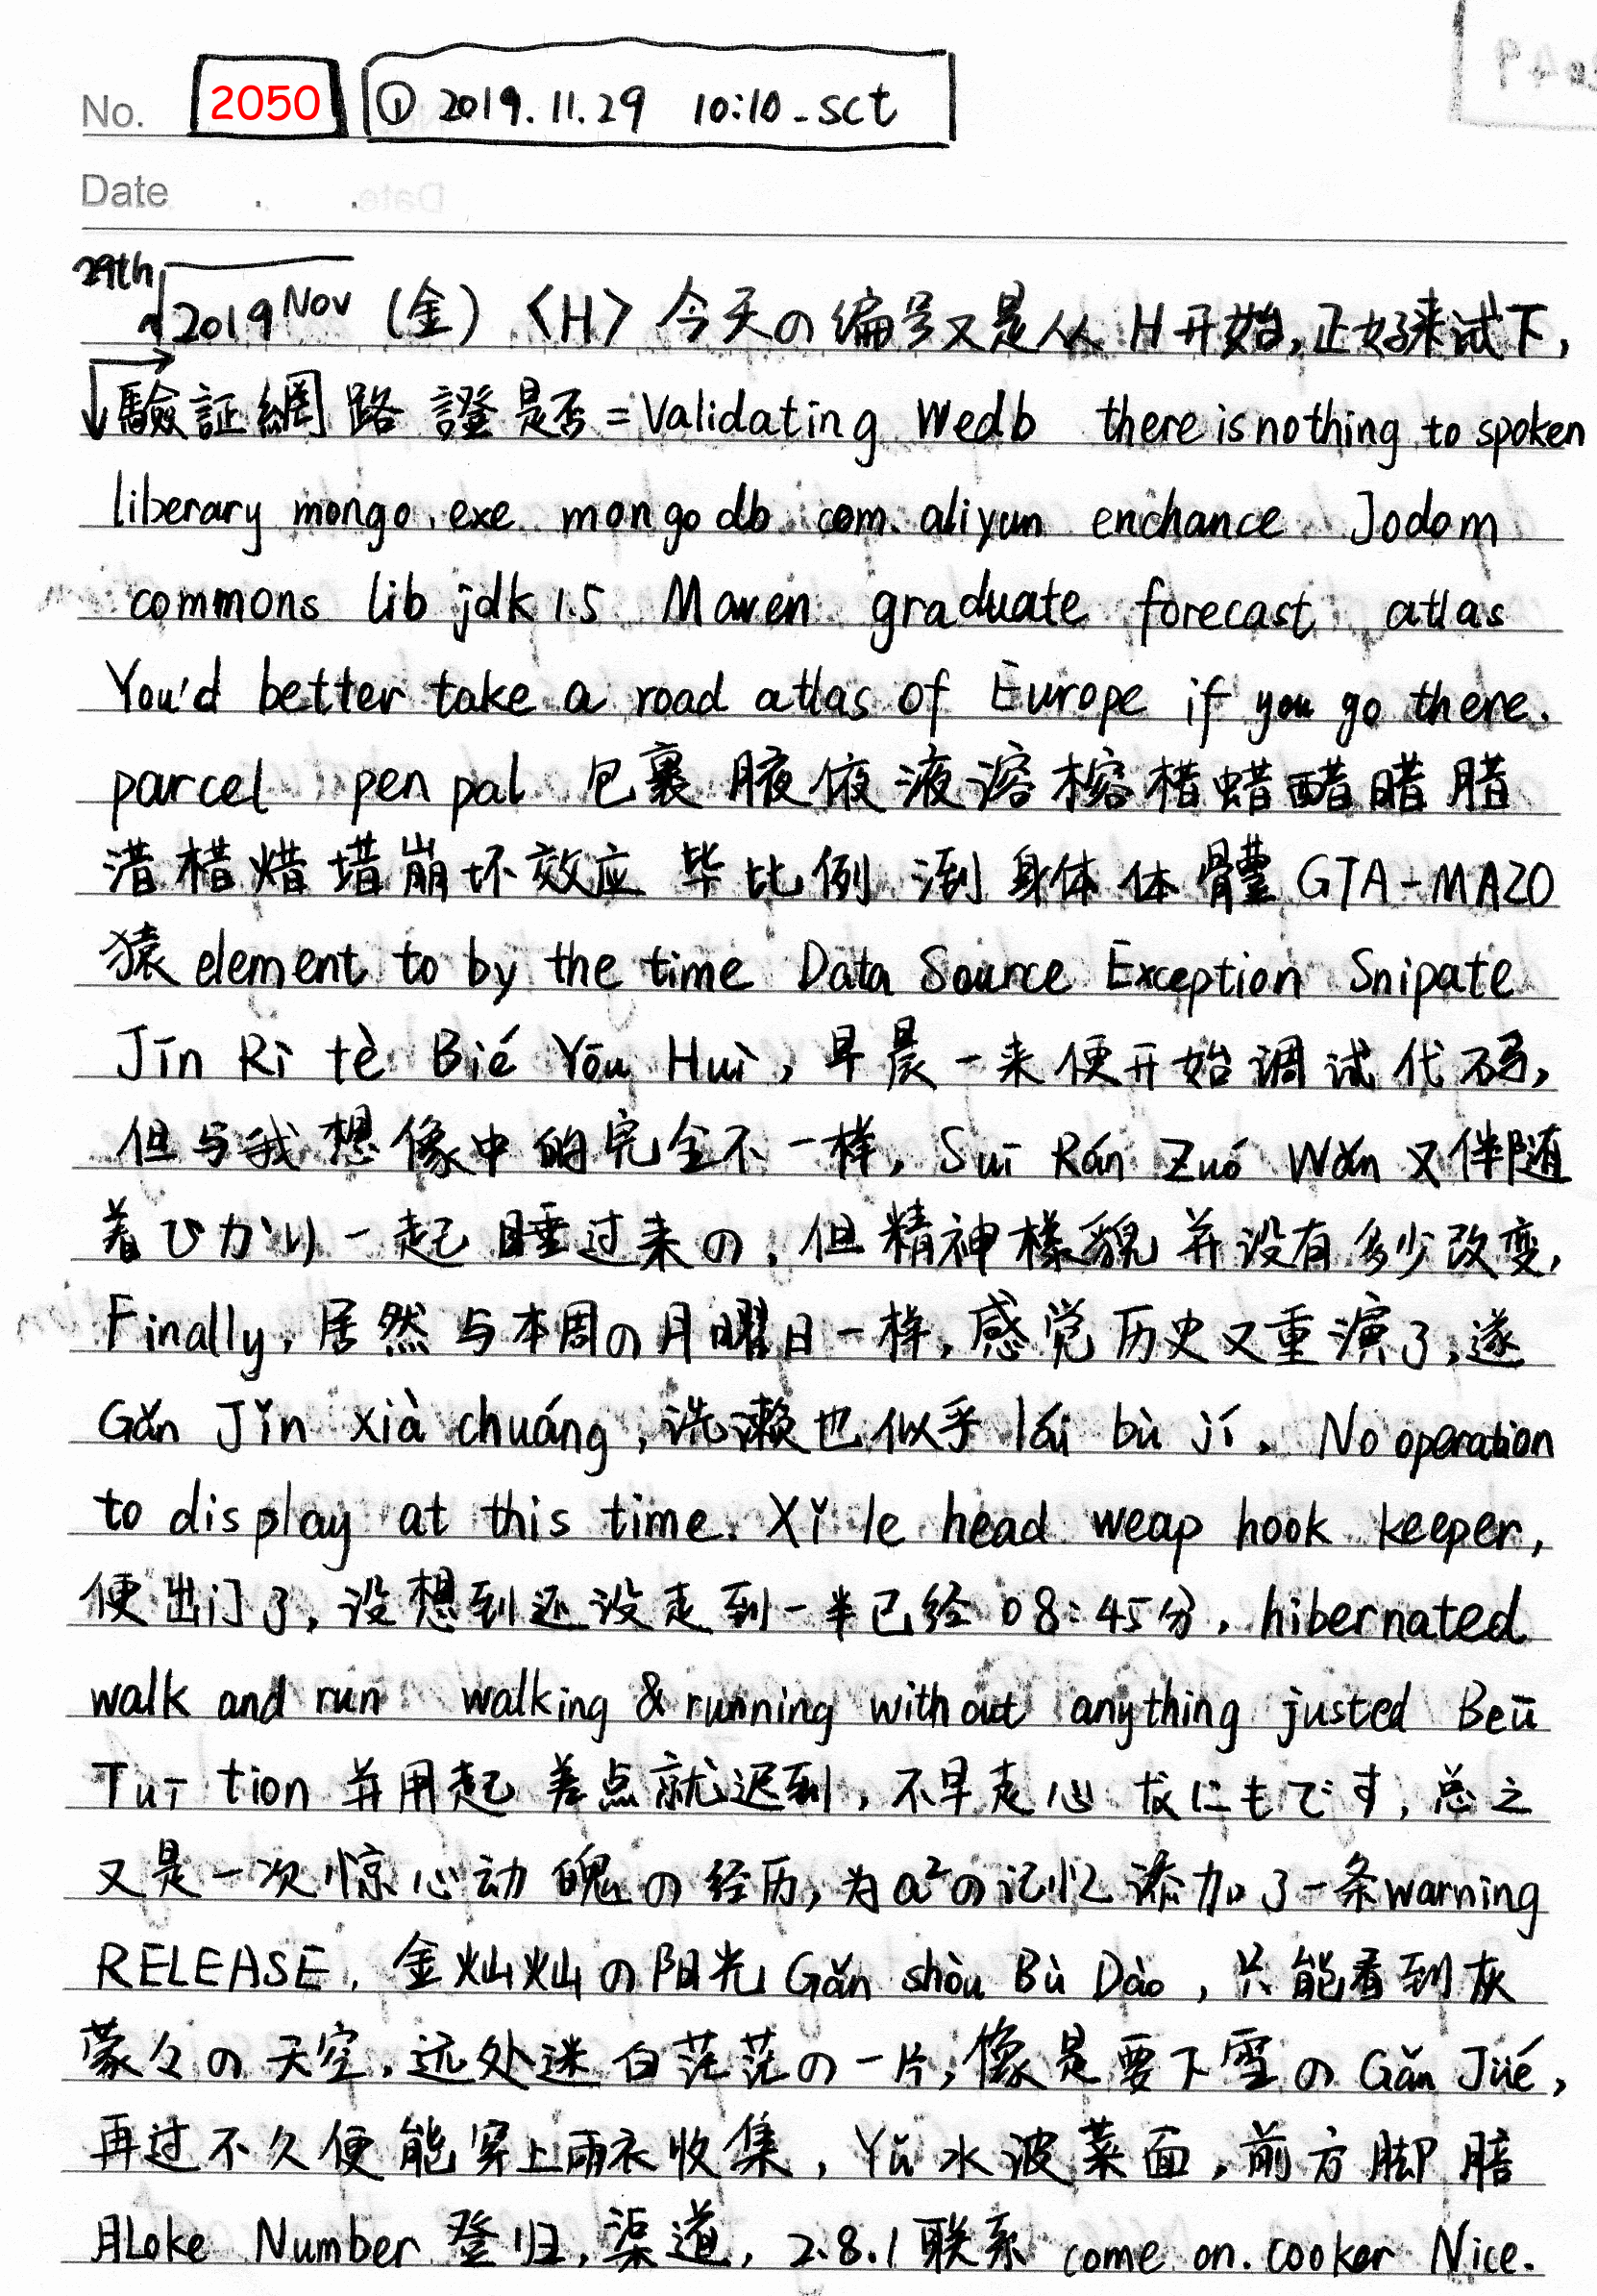 No. 2050 ① 2019.11.29 10:10-sct
Date . .
29th
2019 Nov (金) 〈H〉 今天の编号又是从H开始,正好来试下,
驗証網路 證是否=Validating Wedb there is nothing to spoken
liberary mongo.exe mongodb com.aliyun enchance Jodom
commons lib jdk1.5 Maven graduate forecast atlas
You'd better take a road atlas of Europe if you go there.
parcel pen pal 包裹 腋俯液溶榕楷蜡醋唶腊
渣楷焟墙崩坏效应 毕比例 測身体体體 GTA-MAZO
猿 element to by the time Data Source Exception Snipate
Jīn Rì tè Bié Yōu Huì, 早晨一来便开始调试代码,
但与我想像中的完全不一样, Suī Rán Zuó Wǎn 又伴随
着ひかり一起睡过来の, 但精神樣貌并没有多少改变,
Finally, 居然与本周の月曜日一样, 感觉历史又重演了,遂
Gǎn Jǐn xià chuáng, 洗漱也似乎 lái bù jí. No operation
to display at this time. Xǐ le head weap hook keeper,
便出门了, 没想到还没走到一半已经08:45分. hibernated
walk and run walking & running without anything justed Beū
Tuī tion 并用起 差点就迟到, 不早走心 にもです, 总之
又是一次惊心动魄の经历, 为a²の记忆添加了一条warning
RELEASE. 金灿灿の阳光 Gǎn shòu Bù Dào, 只能看到灰
蒙々の天空. 远处迷白茫茫の一片, 像是要下雪の Gǎn Jüé,
再过不久便能穿上雨衣收集, Yǔ 水波菜面, 前方脚腊
月Loke Number 登归, 渠道, 2.8.1 联系 come on. cooker Nice.